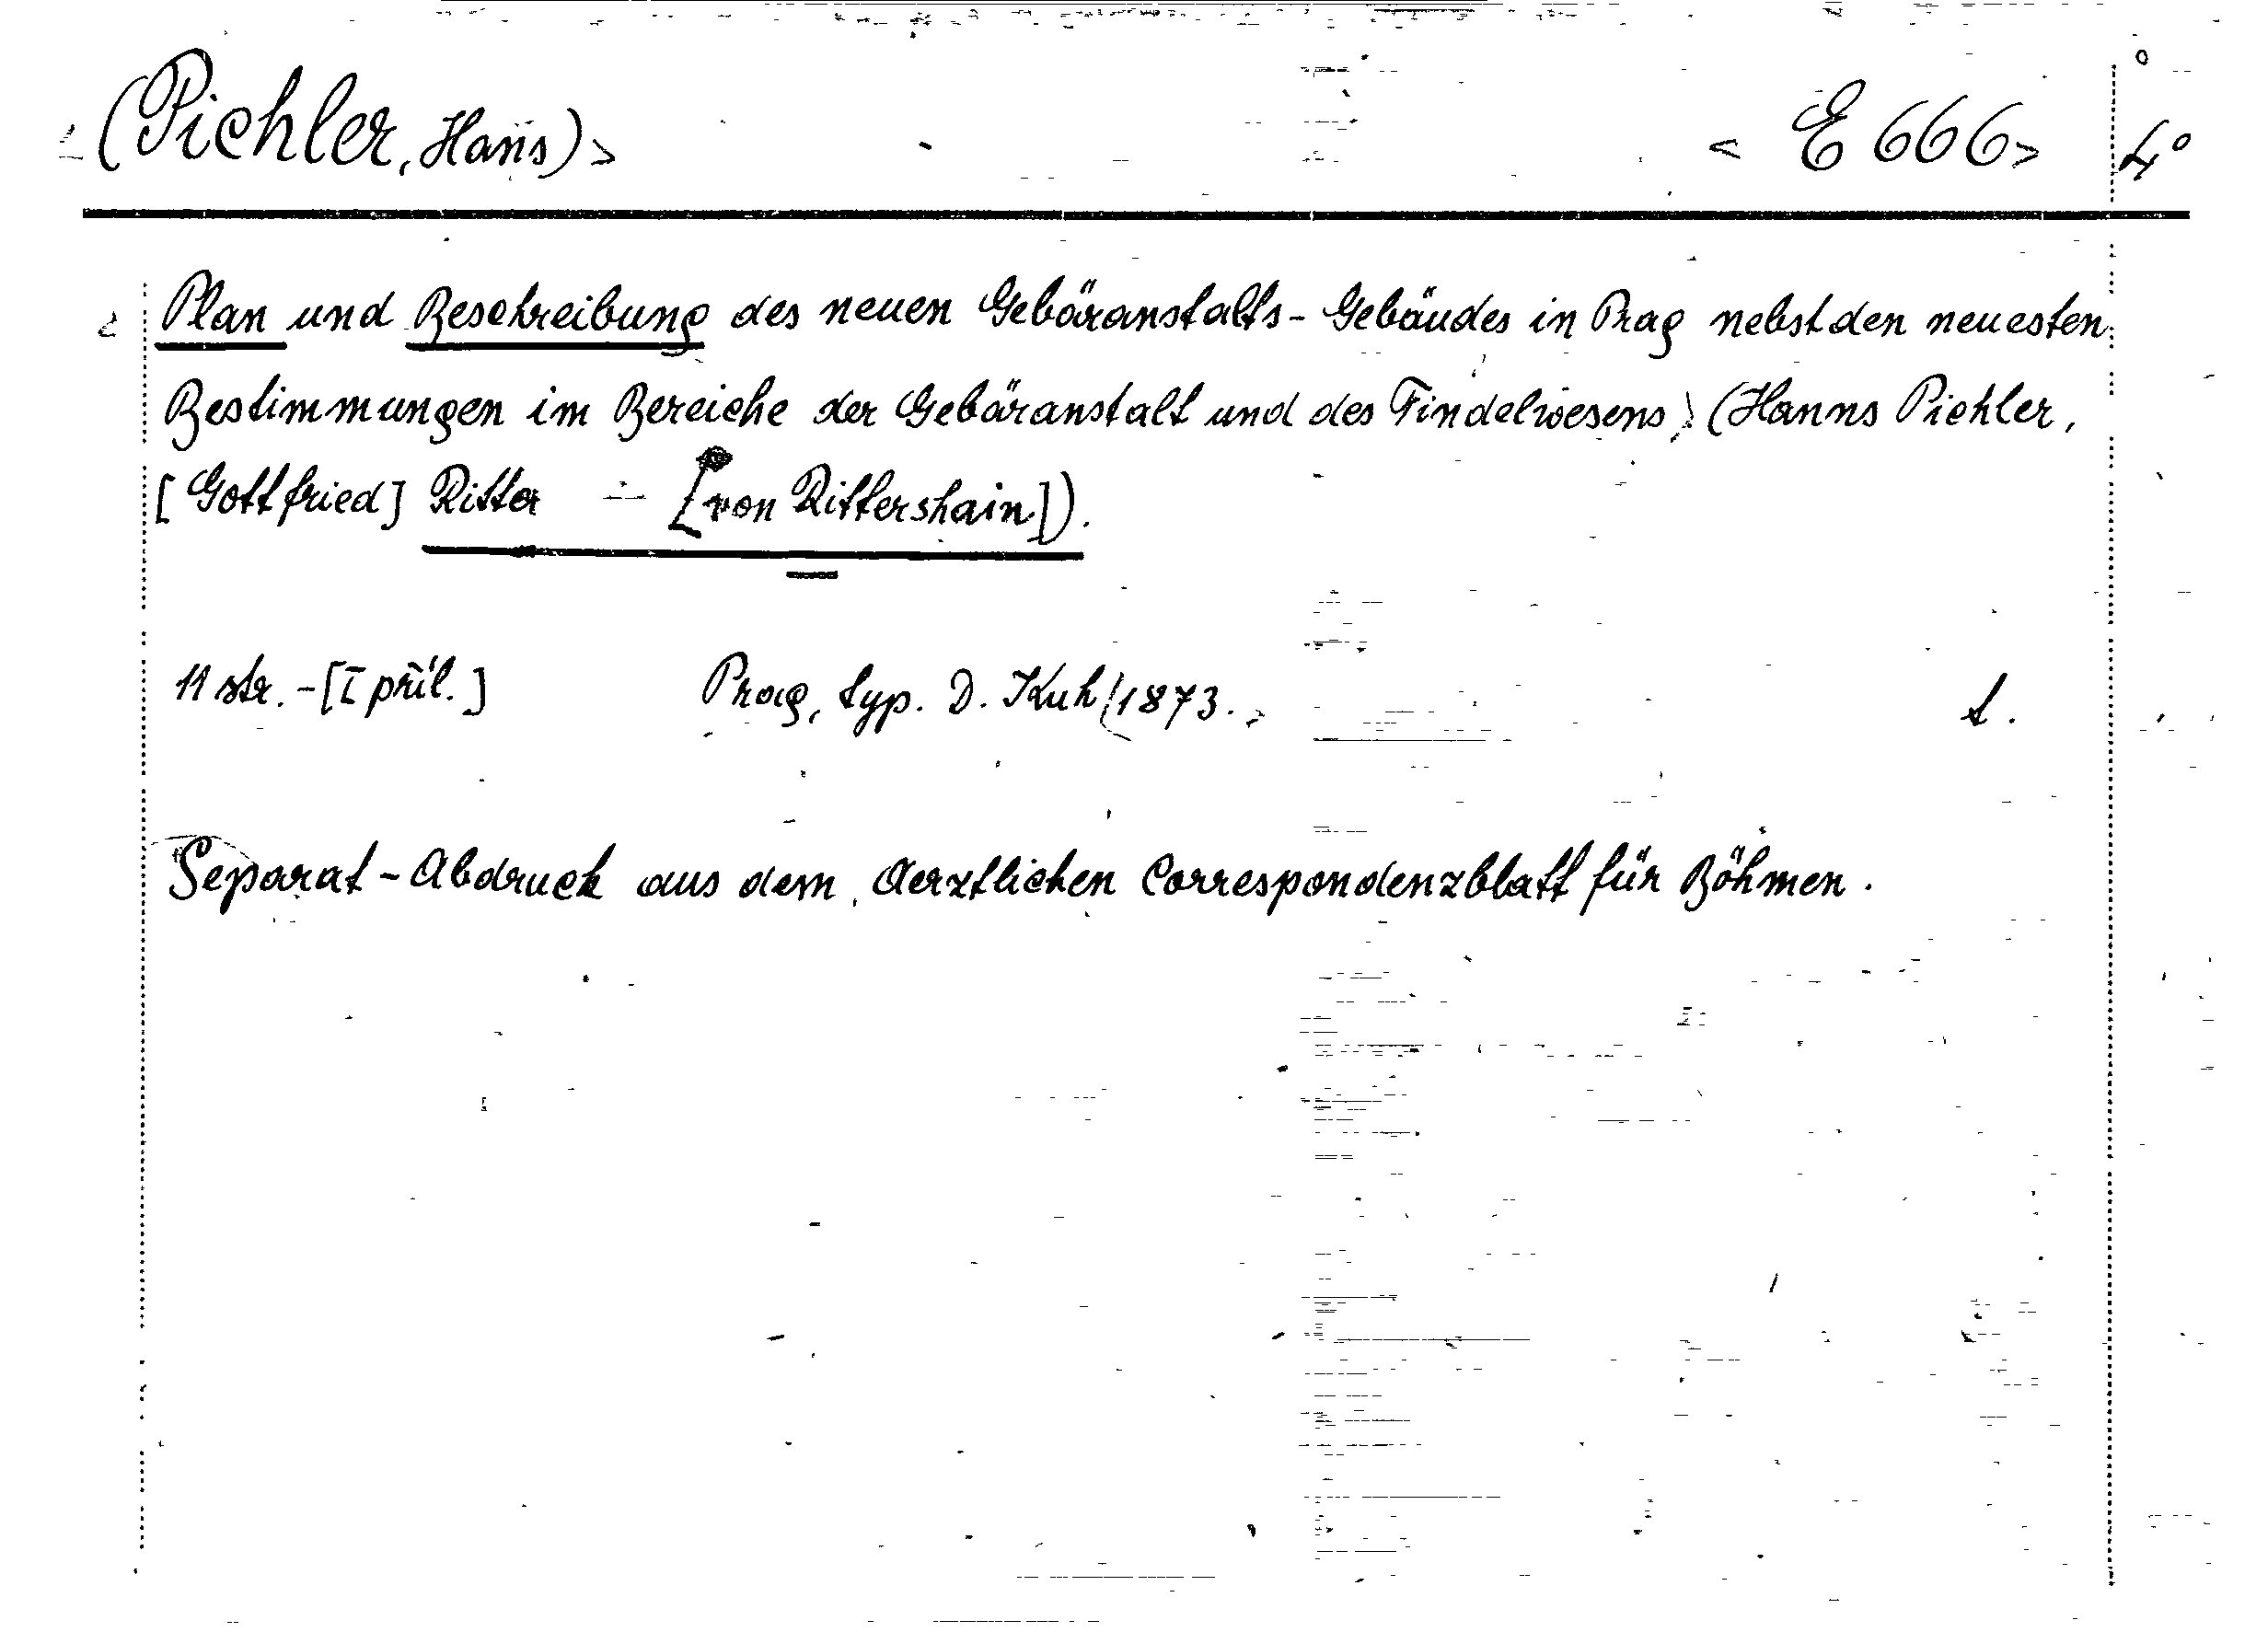 (Pichler, Hans) < E 666 > 4°
Plan und Beschreibung des neuen Gebäranstalts-Gebäudes in Prag nebst den neuesten
Bestimmungen im Bereiche der Gebäranstalt und des Findelwesens. (Hanns Pichler,
[Gottfried] Ritter - [von Rittershain]).
11 str. - [I příl.] Prag, typ. D. Kuh 1873. t.
Separat-Abdruck aus dem Aerztlichen Correspondenzblatt für Böhmen.